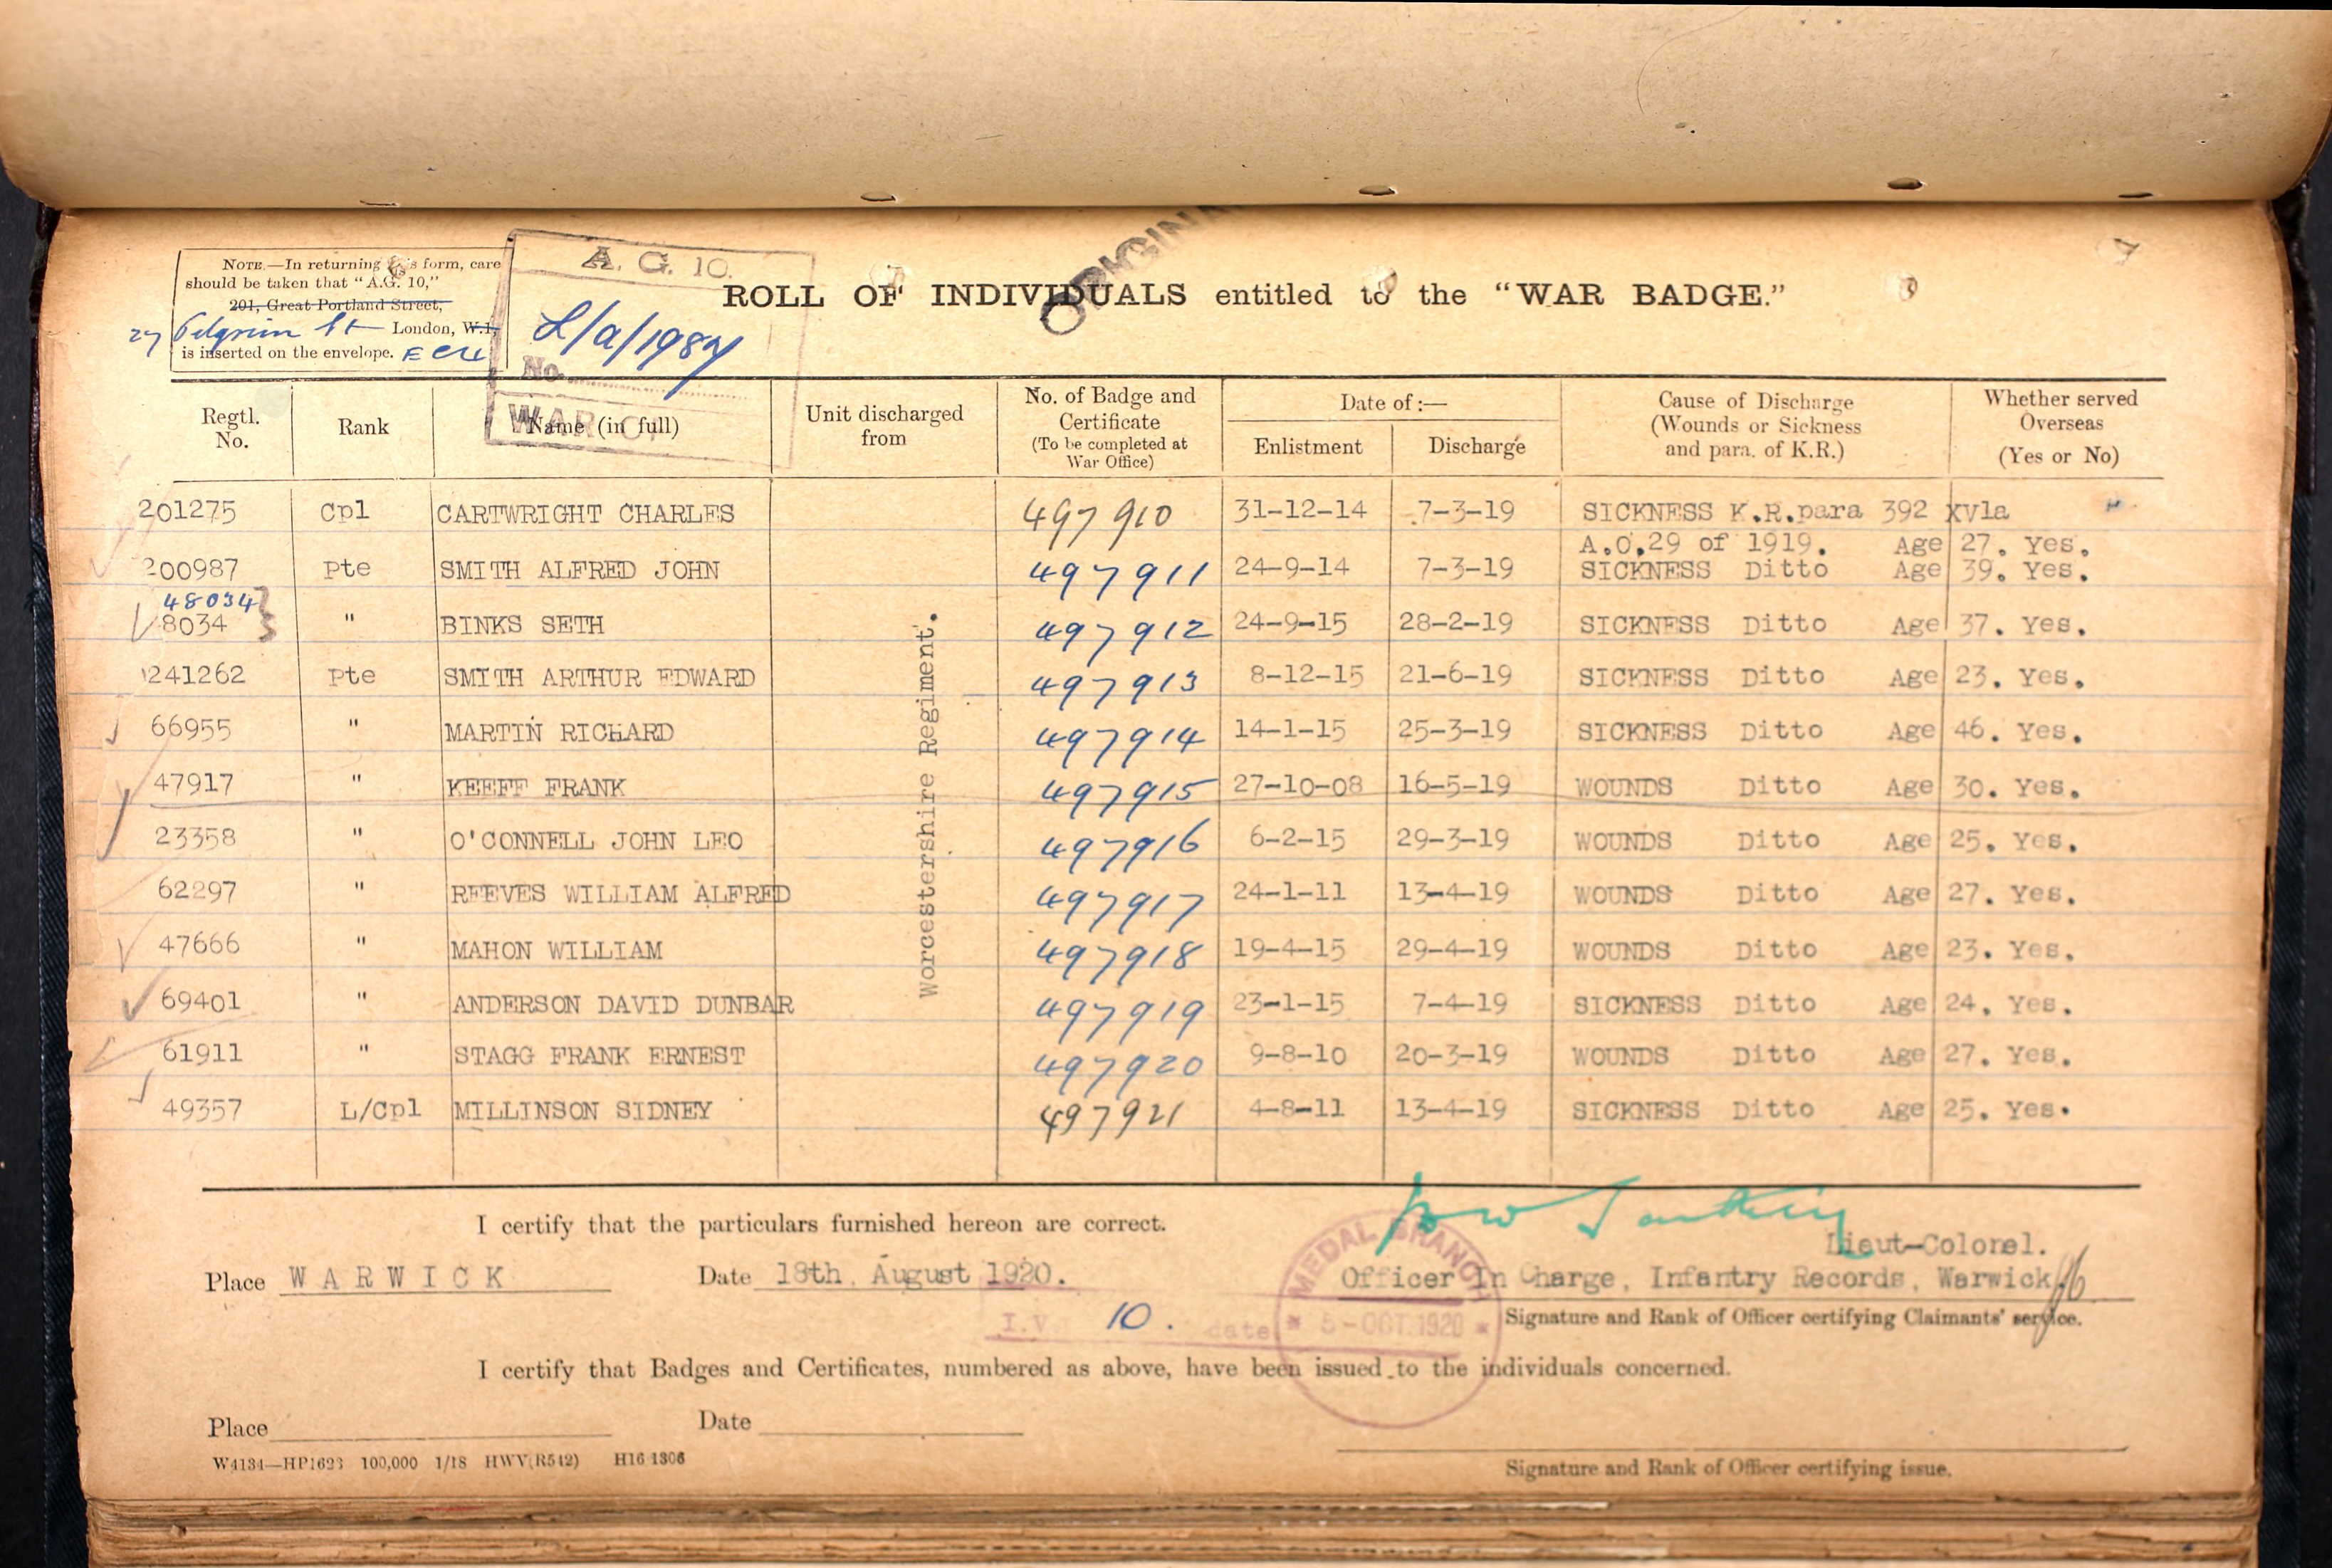 ORIGINA
NOTE.—In returning this form, care
should be taken that "A.G. 10,"
201, Great Portland Street,
27 Pilgrim St London, W.1,
is inserted on the envelope. E C 4
A. G. 10.
No.
WAR OF
ROLL OF INDIVIDUALS entitled to the "WAR BADGE."
Regtl. No. Rank Name (in full) Unit discharged from No. of Badge and Certificate (To be completed at War Office) Date of:— Enlistment Discharge Cause of Discharge (Wounds or Sickness and para. of K.R.) Whether served Overseas (Yes or No)
201275 Cpl CARTWRIGHT CHARLES 497910 31-12-14 7-3-19 SICKNESS K.R.para 392 XVla
A.O.29 of 1919. Age 27. Yes.
200987 Pte SMITH ALFRED JOHN 497911 24-9-14 7-3-19 SICKNESS Ditto Age 39. Yes.
48034
8034 " BINKS SETH 497912 24-9-15 28-2-19 SICKNESS Ditto Age 37. Yes.
241262 Pte SMITH ARTHUR EDWARD 497913 8-12-15 21-6-19 SICKNESS Ditto Age 23. Yes.
66955 " MARTIN RICHARD 497914 14-1-15 25-3-19 SICKNESS Ditto Age 46. Yes.
47917 " KEEFF FRANK 497915 27-10-08 16-5-19 WOUNDS Ditto Age 30. Yes.
23358 " O'CONNELL JOHN LEO 497916 6-2-15 29-3-19 WOUNDS Ditto Age 25. Yes.
62297 " REEVES WILLIAM ALFRED 497917 24-1-11 13-4-19 WOUNDS Ditto Age 27. Yes.
47666 " MAHON WILLIAM 497918 19-4-15 29-4-19 WOUNDS Ditto Age 23. Yes.
69401 " ANDERSON DAVID DUNBAR 497919 23-1-15 7-4-19 SICKNESS Ditto Age 24. Yes.
61911 " STAGG FRANK ERNEST 497920 9-8-10 20-3-19 WOUNDS Ditto Age 27. Yes.
49357 L/Cpl MILLINSON SIDNEY 497921 4-8-11 13-4-19 SICKNESS Ditto Age 25. Yes.
Worcestershire Regiment.
I certify that the particulars furnished hereon are correct.
Lieut-Colonel.
Place WARWICK Date 18th. August 1920. Officer In Charge, Infantry Records, Warwick.
Signature and Rank of Officer certifying Claimants' service.
I.V. 10. date
MEDAL BRANCH
5-OCT.1920
I certify that Badges and Certificates, numbered as above, have been issued to the individuals concerned.
Place Date
W4134—HP1623 100,000 1/18 HWV(R542) H16/1306
Signature and Rank of Officer certifying issue.